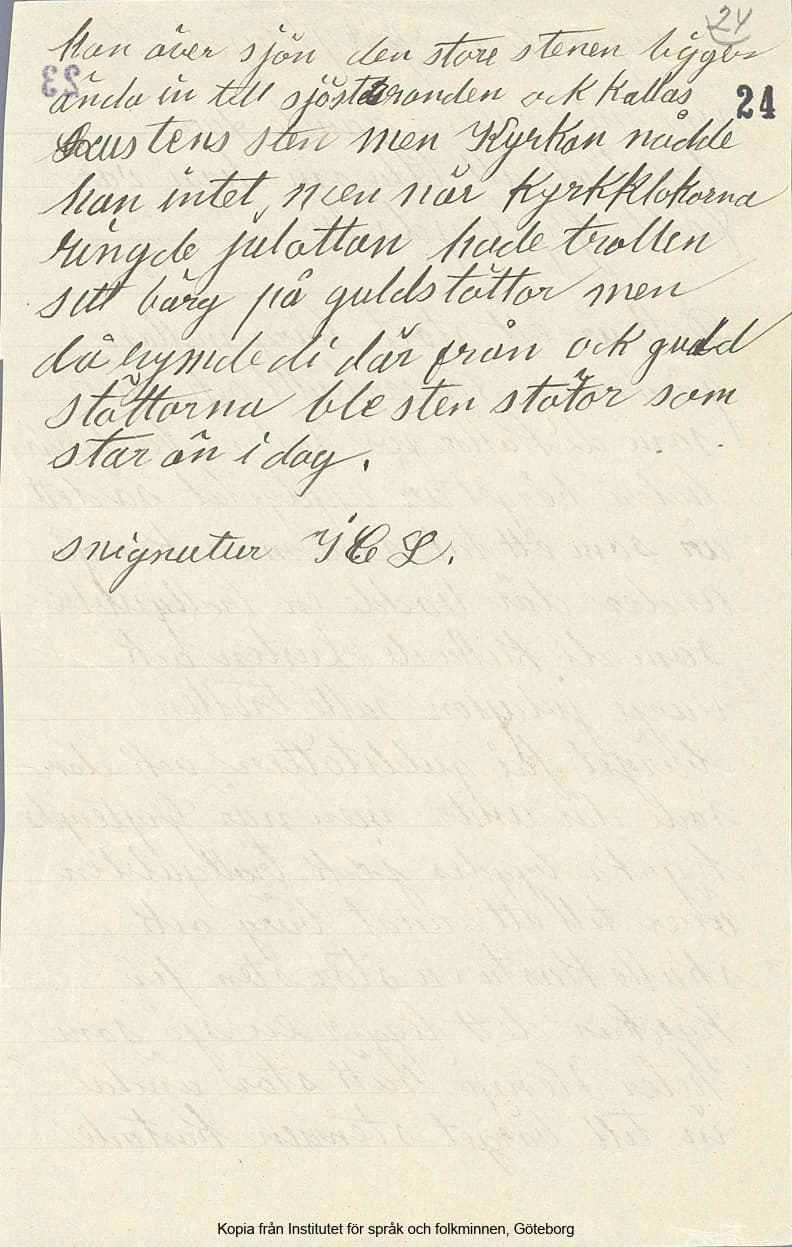 24
han över sjön den store stenen ligger
23
ända in till sjöstranden ock kallas
24
stens sten men Kyrkan nådde
han intet, men når Kyrkklokorna
ringde julottan hade trollen
sitt bärg på guldstöttor men
då rymde di där från ock guld
stöttorna ble sten stötor som
står än i dag.
snignatur I C L.
Kopia från Institutet för språk och folkminnen, Göteborg